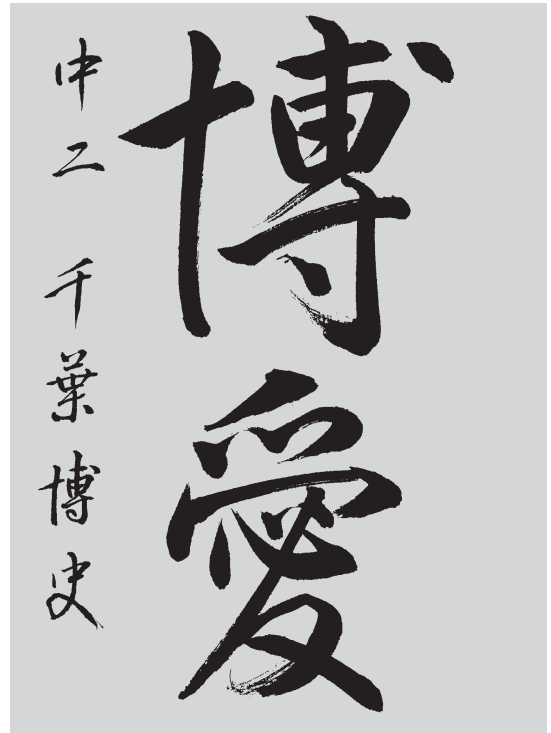 博愛
中二 千葉博史